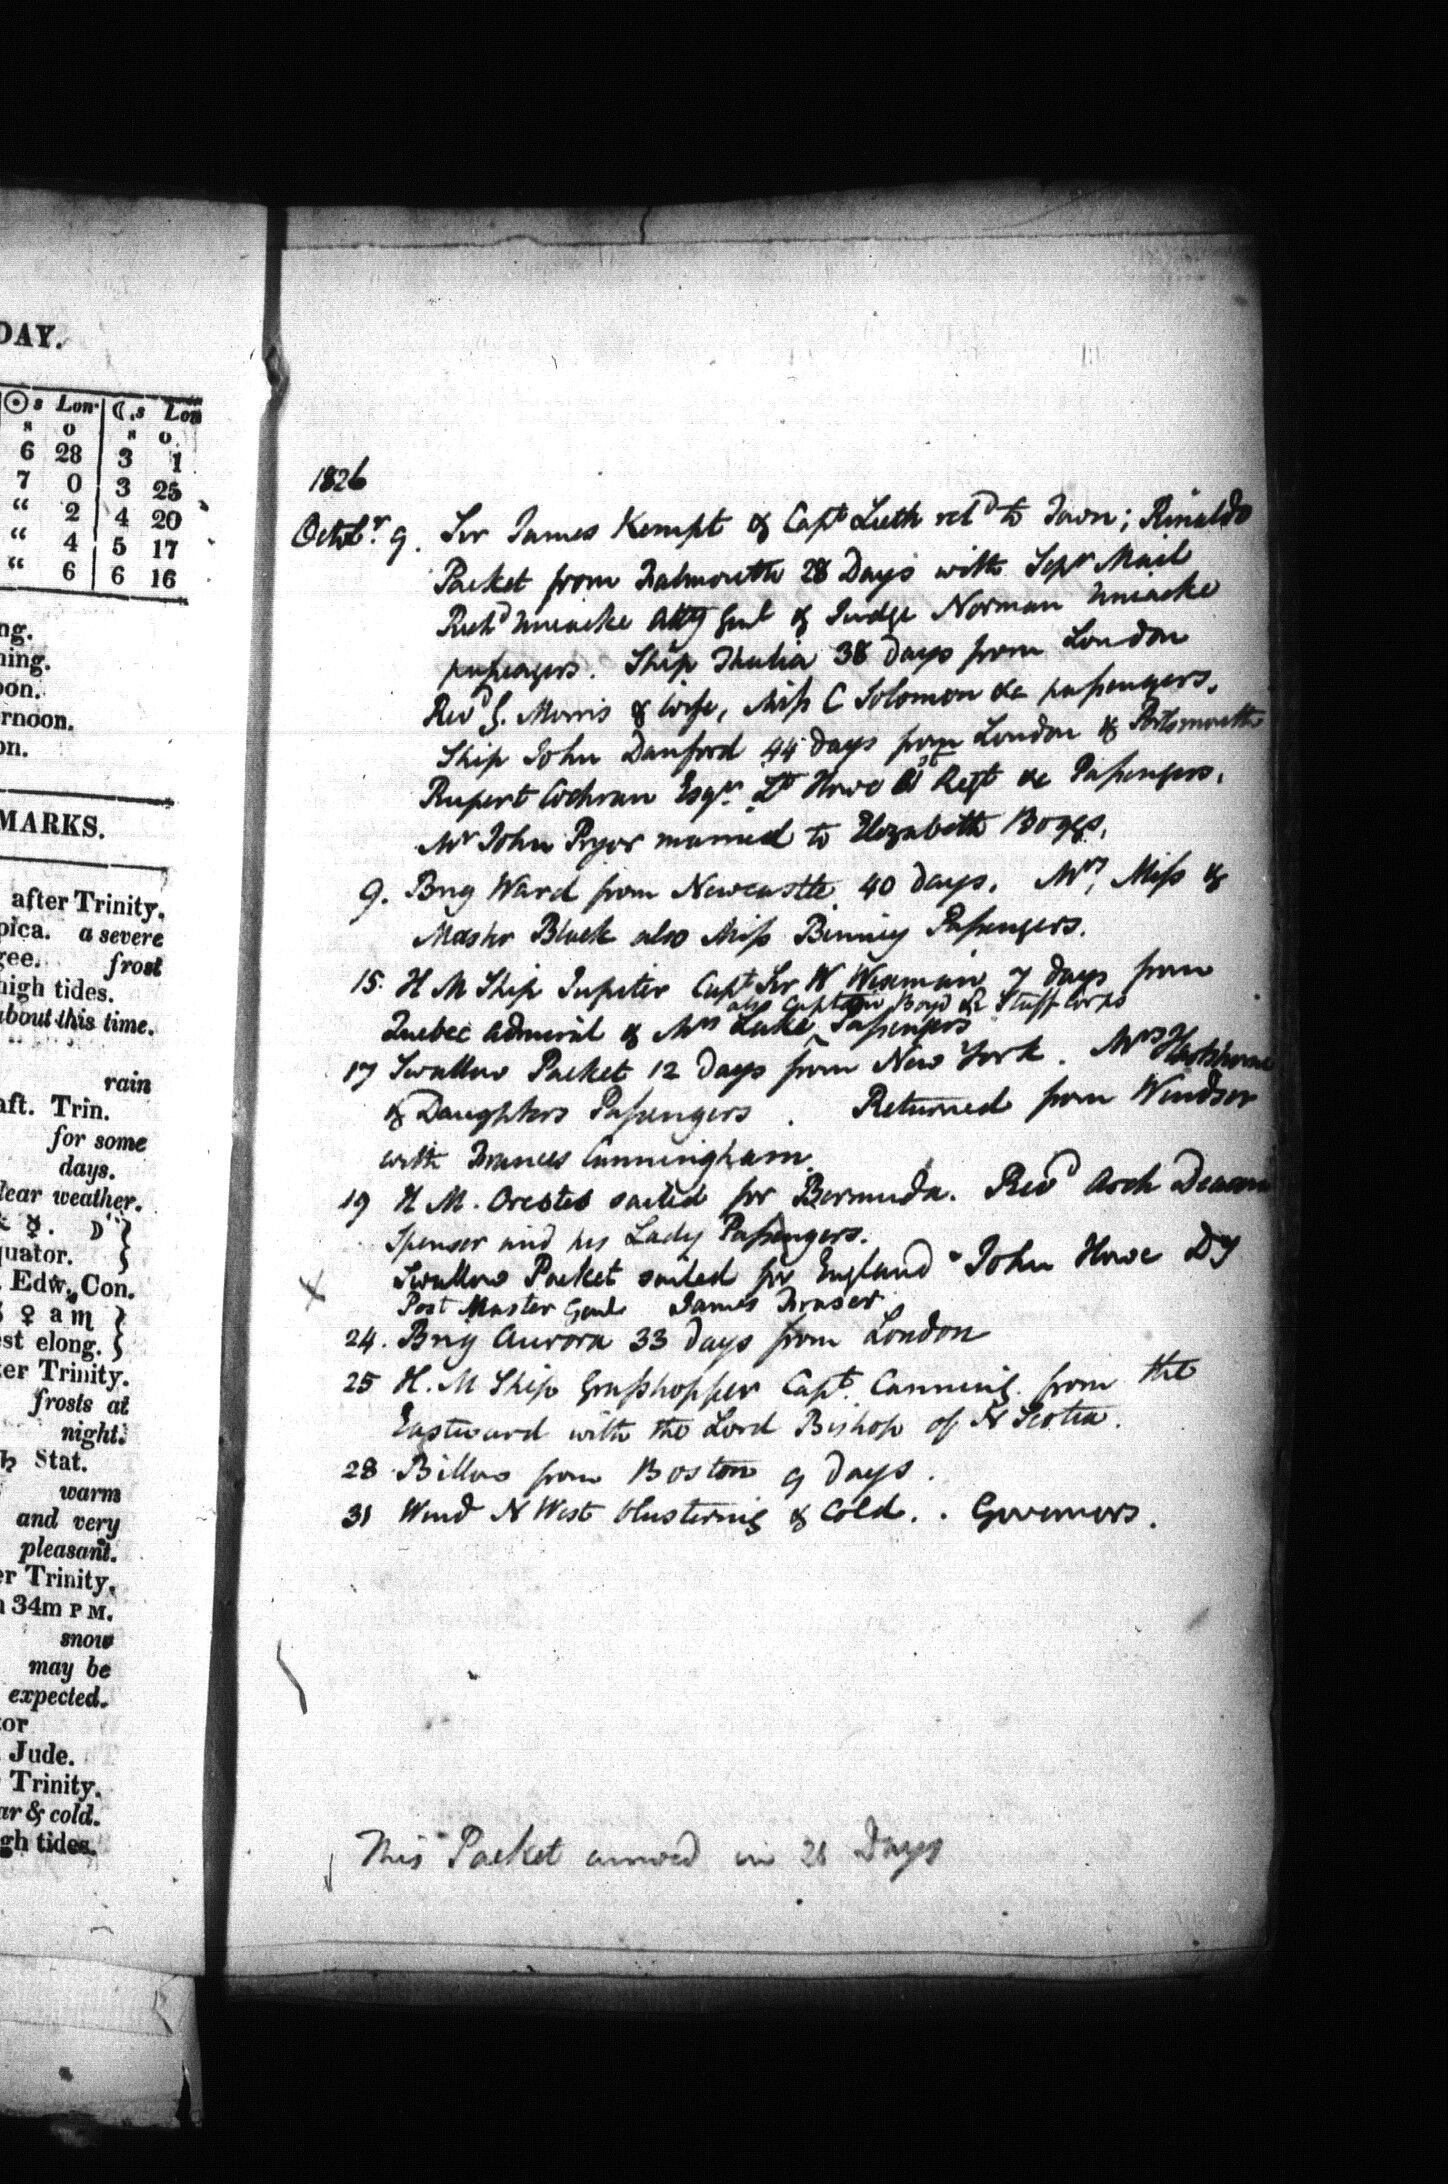 DAY.
☉s Lon. ☾s Lon
s o s o
6 28 3 1
7 0 3 25
“ 2 4 20
“ 4 5 17
“ 6 6 16
ng.
ning.
oon.
rnoon.
on.
MARKS.
after Trinity.
pica. a severe
gee. frost
high tides.
about this time.
rain
aft. Trin.
for some
days.
lear weather.
☿. ☽ }
quator. }
. Edw. Con.
♀ a m }
est elong. }
ter Trinity.
frosts at
night.
♄ Stat.
warm
and very
pleasant.
er Trinity.
34m P M.
snow
may be
expected.
tor
. Jude.
Trinity.
ar & cold.
gh tides.
1826
Octobr. 9. Sir James Kempt & Capt Lieth retd to Town; Rinaldo
Packet from Falmouth 28 Days with Sepr Mail
Richd Uniacke Atty Genl & Judge Norman Uniacke
passengers. Ship Thalia 38 days from London
Revd G. Morris & wife, Miss C Solomon &c passengers.
Ship John Danford 44 days from London & Portsmouth
Rupert Cochran Esqr. Lt Howe 81st Regt &c Passengers.
Mr John Pryor married to Elizabeth Boggs.
9. Brig Ward from Newcastle 40 days. Mrs, Miss &
Master Black also Miss Binney Passengers.
15. H M Ship Jupiter Capt Sir W Wiseman 7 days from
also Captain Boyd R Staff Corps
Quebec Admiral & Mrs Lake Passengers
17 Swallow Packet 12 days from New York. Mrs Hartshorne
& Daughters Passengers. Returned from Windsor
with Frances Cunningham.
19 H M. Orestes sailed for Bermuda. Revd Arch Deacon
Spenser and his Lady Passengers.
x Swallow Packet sailed for England John Howe Dy
Post Master Genl James Fraser
24. Brig Aurora 33 days from London
25 H. M Ship Grasshopper Capt. Canning from the
Eastward with the Lord Bishop of N Scotia.
28 Billow from Boston 9 days.
31 Wind N West blustering & Cold. . Governors.
This Packet arrived in 28 Days